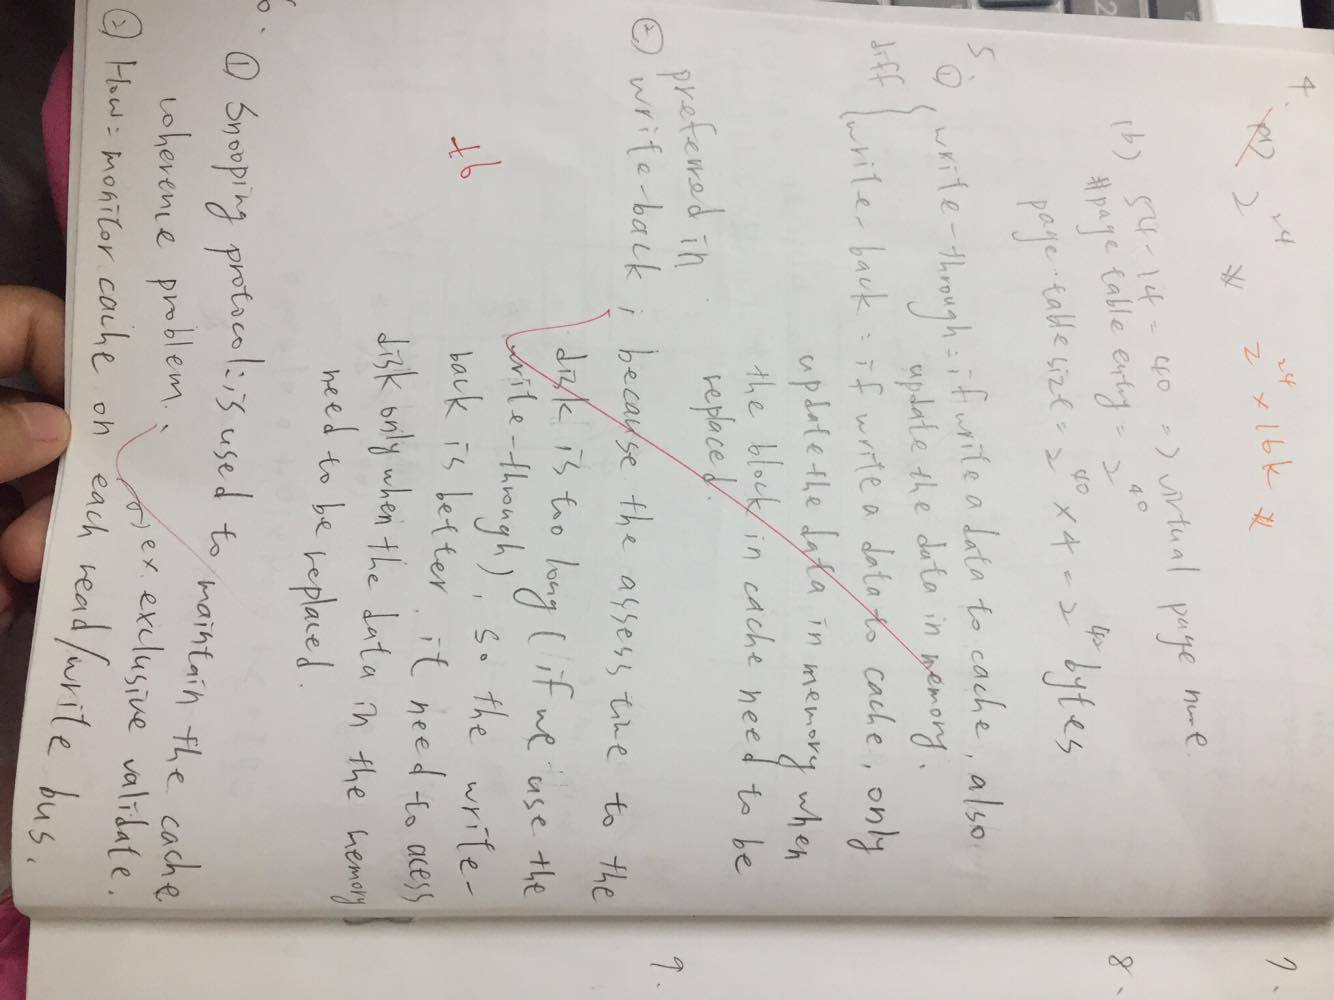 4.
(a) 2^24 # 2^24 × 16k #
(b) 54-14 = 40 => virtual page
#page table entry = 2^40
page table size = 2^40 × 4 = 2^42 bytes
5.
① write-through: if write a data to cache, also
update the data in memory.
diff
write-back: if write a data to cache, only
update the data in memory when
the block in cache need to be
replaced.
preferred in
② write-back; because the assess time to the
disk is too long (if we use the
write-through), so the write-
back is better. it need to acess
+6
disk only when the data in the memory
need to be replaced.
6.
① Snooping protocol: is used to maintain the cache
coherence problem. ex. exclusive validate.
② How: monitor cache on each read/write bus.
7.
8.
9.